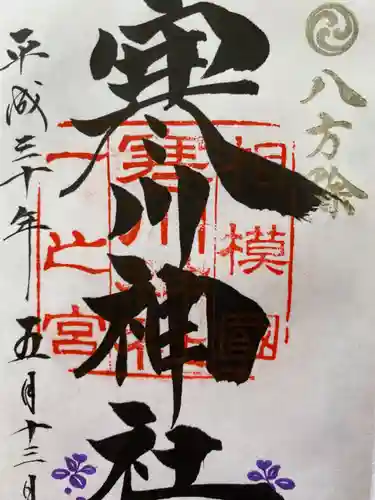 八方除
寒川神社
相模國
寒川神社
一之宮
平成三十年五月十三日